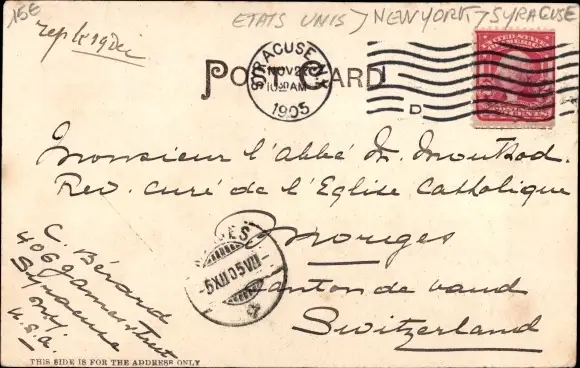 15E
ETATS UNIS > NEW YORK > SYRACUSE
rep le 19 Dec
POST CARD
SYRACUSE, N.Y.
NOV 22
10 AM
1905
D
UNITED STATES OF AMERICA
Monsieur l'abbé M.
Rev. curé de l'Eglise Catholique
Morges
Canton de Vaud
Switzerland
MORGES
-5.XII.05.VII
C. Bérard
406 James Street
Syracuse
N.Y.
U.S.A.
THIS SIDE IS FOR THE ADDRESS ONLY